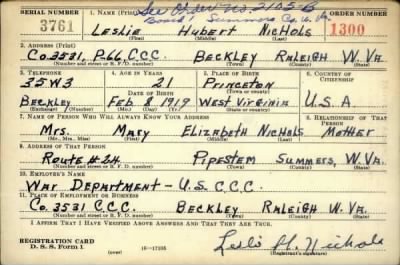 SERIAL NUMBER 1. NAME (Print) See Order No. 2105 B ORDER NUMBER
Board 1 Summers Co. W. Va.
3761 LESLIE HUBERT NICHOLS 1300
(First) (Middle) (Last)
2. ADDRESS (Print)
CO. 3531 P-66 C.C.C. BECKLEY RALEIGH W. VA.
(Number and street or R. F. D. number) (Town) (County) (State)
3. TELEPHONE 4. AGE IN YEARS 5. PLACE OF BIRTH 6. COUNTRY OF CITIZENSHIP
35W3 21 PRINCETON
DATE OF BIRTH (Town or county)
BECKLEY FEB. 8 1919 WEST VIRGINIA U.S.A.
(Exchange) (Number) (Mo.) (Day) (Yr.) (State or country)
7. NAME OF PERSON WHO WILL ALWAYS KNOW YOUR ADDRESS 8. RELATIONSHIP OF THAT PERSON
MRS. MARY ELIZABETH NICHOLS MOTHER
(Mr., Mrs., Miss) (First) (Middle) (Last)
9. ADDRESS OF THAT PERSON
ROUTE #24 PIPESTEM SUMMERS, W. VA.
(Number and street or R. F. D. number) (Town) (County) (State)
10. EMPLOYER'S NAME
WAR DEPARTMENT - U.S. C.C.C.
11. PLACE OF EMPLOYMENT OR BUSINESS
CO. 3531 C.C.C. BECKLEY RALEIGH W. VA.
(Number and street or R. F. D. number) (Town) (County) (State)
I AFFIRM THAT I HAVE VERIFIED ABOVE ANSWERS AND THAT THEY ARE TRUE.
REGISTRATION CARD
D. S. S. Form 1 16-17105 Leslie H. Nichols
(Registrant's signature)